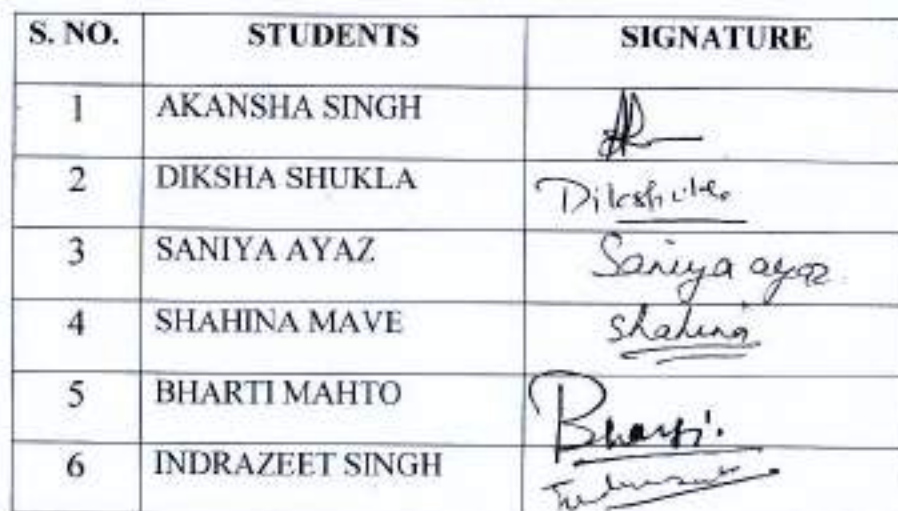 S. NO. STUDENTS SIGNATURE
1 AKANSHA SINGH
2 DIKSHA SHUKLA
3 SANIYA AYAZ Saniya ayaz
4 SHAHINA MAVE Shahina
5 BHARTI MAHTO Bharti.
6 INDRAZEET SINGH